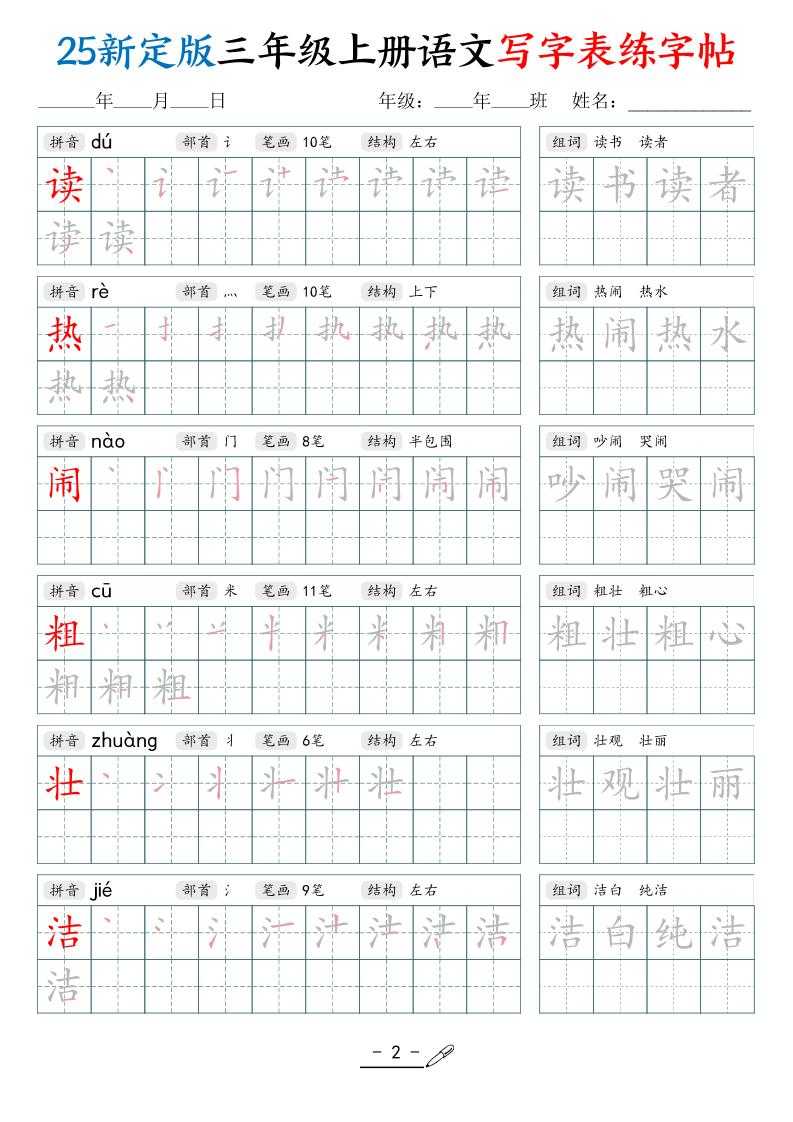 25新定版三年级上册语文写字表练字帖
____年____月____日 年级：____年____班 姓名：__________
拼音 dú 部首 讠 笔画 10笔 结构 左右 组词 读书 读者
读 读书读者
读读
拼音 rè 部首 灬 笔画 10笔 结构 上下 组词 热闹 热水
热 热闹热水
热热
拼音 nào 部首 门 笔画 8笔 结构 半包围 组词 吵闹 哭闹
闹 闹 吵闹哭闹
拼音 cū 部首 米 笔画 11笔 结构 左右 组词 粗壮 粗心
粗 粗壮粗心
粗
拼音 zhuàng 部首 丬 笔画 6笔 结构 左右 组词 壮观 壮丽
壮 壮 壮观壮丽
拼音 jié 部首 氵 笔画 9笔 结构 左右 组词 洁白 纯洁
洁 洁白纯洁
洁
- 2 -